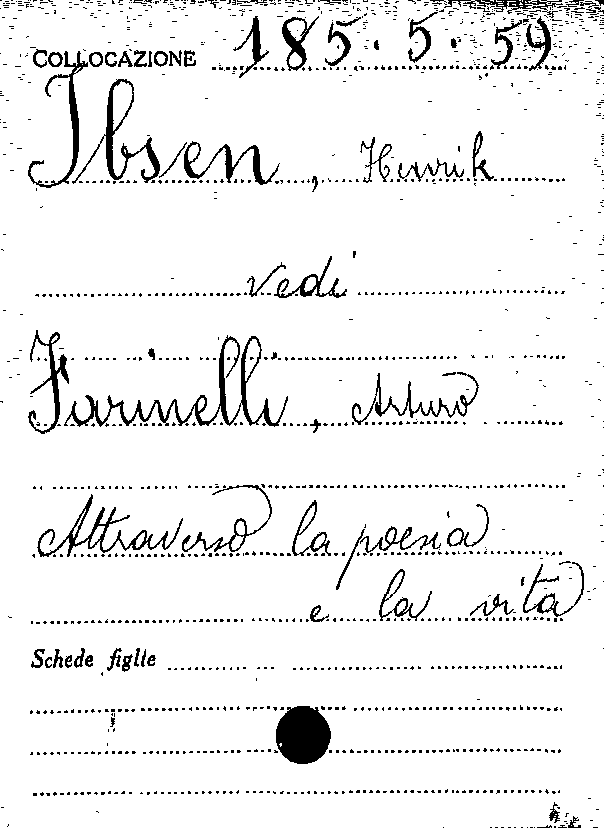 COLLOCAZIONE 185.5.59
Ibsen, Henrik
vedi
Farinelli, Arturo
Attraverso la poesia
e la vita
Schede figlie